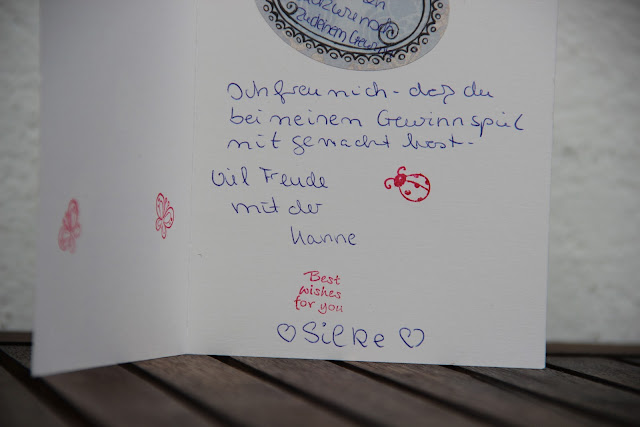 zu deinem Gewinn
Ich freu mich - daß du
bei meinem Gewinnspiel
mit gemacht hast -
Viel Freude
mit der
Kanne
Best
wishes
for you
♡ Silke ♡